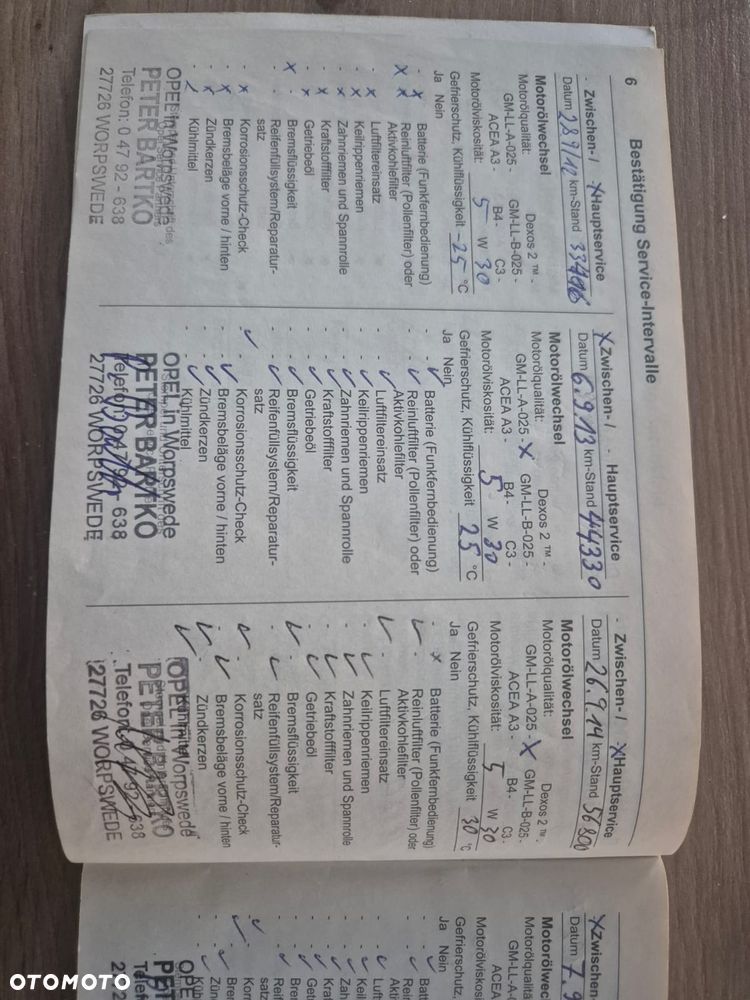 6 Bestätigung Service-Intervalle
Zwischen- / X Hauptservice
Datum 28.9/12 km-Stand
Motorölwechsel
Motorölqualität: Dexos 2 ™ -
GM-LL-A-025 - GM-LL-B-025 -
ACEA A3 - B4 - C3 -
Motorölviskosität: 5 W 30
Gefrierschutz, Kühlflüssigkeit -25 °C
Ja Nein
- X Batterie (Funkfernbedienung)
X - Reinluftfilter (Pollenfilter) oder
Aktivkohlefilter
- X Luftfiltereinsatz
- X Keilrippenriemen
- X Zahnriemen und Spannrolle
- X Kraftstofffilter
- X Getriebeöl
X - Bremsflüssigkeit
- Reifenfüllsystem/Reparatur-
satz
- X Korrosionsschutz-Check
- X Bremsbeläge vorne / hinten
- X Zündkerzen
Kühlmittel
OPEL in Worpswede
PETER BARTKO
Telefon: 0 47 92 - 638
27726 WORPSWEDE
X Zwischen- / - Hauptservice
Datum 6.9.13 km-Stand 44330
Motorölwechsel
Motorölqualität: Dexos 2 ™ -
GM-LL-A-025 - X GM-LL-B-025 -
ACEA A3 - B4 - C3 -
Motorölviskosität: 5 W 30
Gefrierschutz, Kühlflüssigkeit 25 °C
Ja Nein
- ✓ Batterie (Funkfernbedienung)
- ✓ Reinluftfilter (Pollenfilter) oder
Aktivkohlefilter
- ✓ Luftfiltereinsatz
- ✓ Keilrippenriemen
- ✓ Zahnriemen und Spannrolle
- ✓ Kraftstofffilter
- ✓ Getriebeöl
- ✓ Bremsflüssigkeit
- ✓ Reifenfüllsystem/Reparatur-
satz
✓ - Korrosionsschutz-Check
- ✓ Bremsbeläge vorne / hinten
- ✓ Zündkerzen
- ✓ Kühlmittel
OPEL in Worpswede
PETER BARTKO
Telefon: 0 47 92 - 638
27726 WORPSWEDE
- Zwischen- / X Hauptservice
Datum 26.9.14 km-Stand 56800
Motorölwechsel
Motorölqualität: Dexos 2 ™ -
GM-LL-A-025 - X GM-LL-B-025 -
ACEA A3 - B4 - C3 -
Motorölviskosität: 5 W 30
Gefrierschutz, Kühlflüssigkeit 30 °C
Ja Nein
- x Batterie (Funkfernbedienung)
✓ - Reinluftfilter (Pollenfilter) oder
Aktivkohlefilter
✓ - Luftfiltereinsatz
- ✓ Keilrippenriemen
- ✓ Zahnriemen und Spannrolle
- ✓ Kraftstofffilter
- ✓ Getriebeöl
✓ - Bremsflüssigkeit
- ✓ Reifenfüllsystem/Reparatur-
satz
✓ - Korrosionsschutz-Check
- ✓ Bremsbeläge vorne / hinten
✓ - Zündkerzen
OPEL in Worpswede
PETER BARTKO
Telefon: 0 47 92 - 638
27726 WORPSWEDE
X Zwischen-
Datum 7.9
Motorölwec
Motorölqualitä
GM-LL-A-0
ACEA
Motorölviskos
Gefrierschutz,
Ja Nein
- ✓ Batt
- ✓ Rei
Akti
- ✓ Luft
- ✓ Kei
- ✓ Za
- ✓ Kra
- ✓ Ge
- ✓ Bre
- ✓ Rei
satz
✓ - Kor
- ✓ Bre
- ✓ Zün
Kühl
OPEL
PET
Telef
OTOMOTO